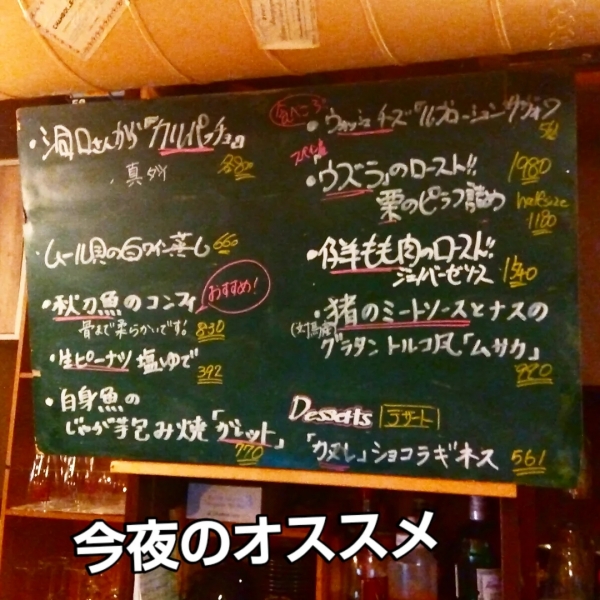 ・洞口さんが『カルパッチョ』
真ダイ
880
ムール貝の白ワイン蒸し 660
・秋刀魚のコンフィ
おすすめ!
骨まで柔らかいです! 830
・生ピーナツ 塩ゆで
392
・白身魚の
じゃが芋包み焼「ガレット」
770
食べころ
・ウォッシュチーズ『ルブローションサヴォワ』
スペイン産
・ウズラのロースト!! 1980
栗のピラフ詰め half size
1180
・仔羊もも肉のロースト!!
ジュニパーゼソース 1540
・猪のミートソースとナスの
(対馬産) グラタントルコ風「ムサカ」
990
Desserts デザート
「カヌレ」ショコラギネス 561
今夜のオススメ